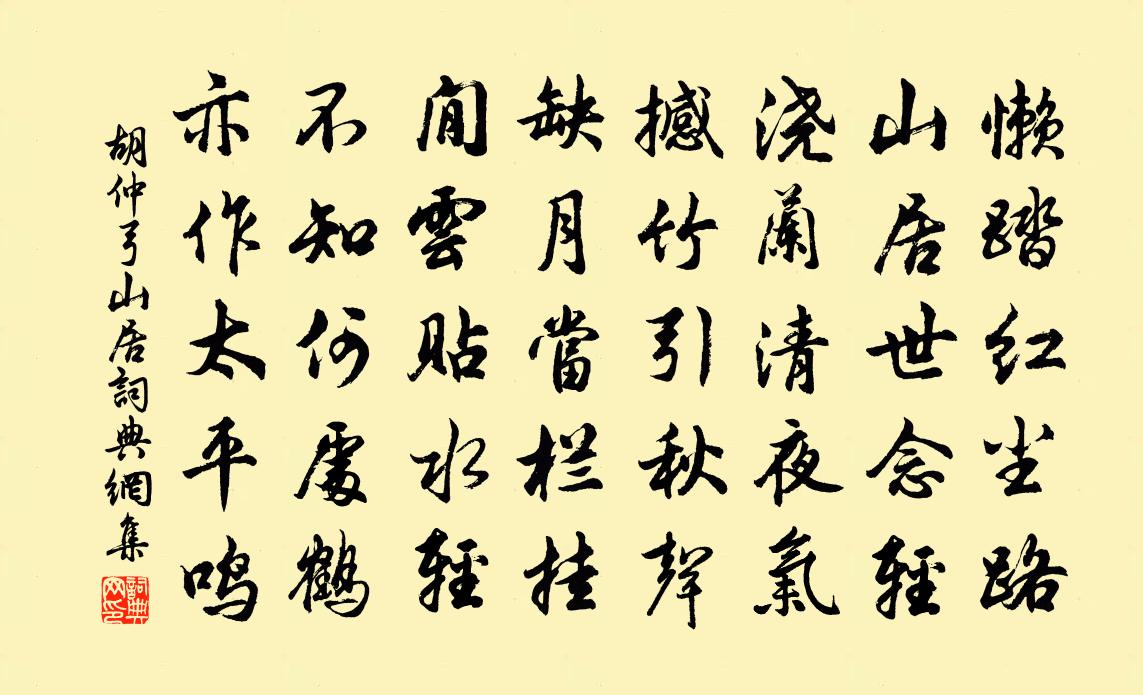 懒踏红尘路
山居世念轻
浇蘭清夜氣
撼竹引秋聲
缺月當栏挂
閒雲貼水輕
不知何處鶴
亦作太平鸣
胡仲弓山居詞典網集
詞典
网印